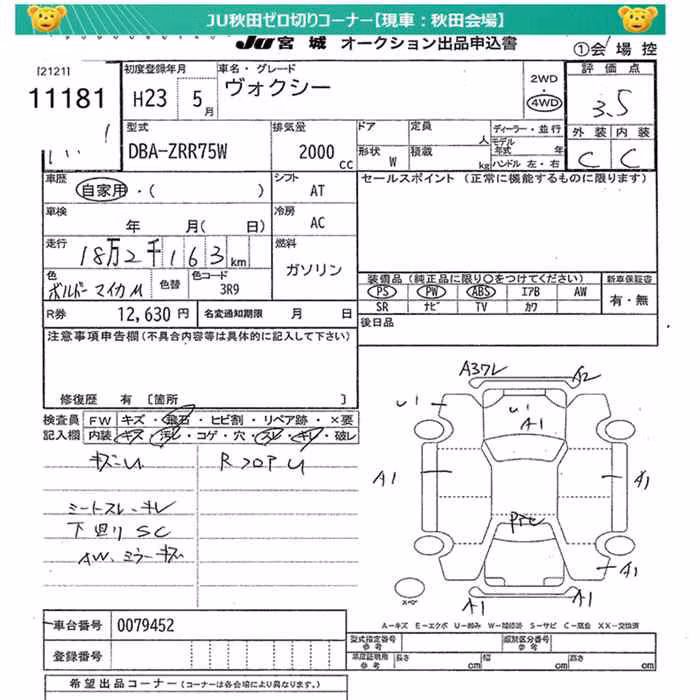 JU秋田ゼロ切りコーナー【現車：秋田会場】
JU 宮城 オークション出品申込書
①会場控
[2121]
11181
初度登録年月
H23 5月
車名・グレード
ヴォクシー
2WD
・
4WD
評価点
3.5
外装 内装
C C
型式
DBA-ZRR75W
排気量
2000 cc
ドア
定員 人
ディーラー・並行
モデル年式 年
形状 W
積載 kg
ハンドル 左・右
車歴
自家用・( )
シフト
AT
セールスポイント (正常に機能するものに限ります)
車検
年 月( 日)
冷房
AC
走行
18万2千163km
燃料
ガソリン
色
ボルドーマイカM
色替
色コード
3R9
装備品(純正品に限り○をつけてください)
新車保証書
PS PW ABS エアB AW
有・無
SR ナビ TV カワ
R券 12,630円
名変通知期限 月 日
後日品
注意事項申告欄(不具合内容等は具体的に記入して下さい)
修復歴 有 [箇所 ]
検査員記入欄
FW キズ・飛石・ヒビ割・リペア跡・×要
内装 キズ・汚レ・コゲ・穴・スレ・キレ・破レ
キズU
RフロアU
シートスレ・キレ
下廻りSC
AW、ミラーキズ
A37レ
A2
U1
U1
A1
A1
A1
A1
A1
A1
スペア
A－キズ E－エクボ U－凹み W－補修跡 S－サビ C－腐食 XX－交換済
車台番号 0079452
登録番号
型式指定番号 参考
類別区分番号 参考
車庫証明用 参考
長さ cm
幅 cm
高さ cm
希望出品コーナー(コーナーは各会場により異なります。)